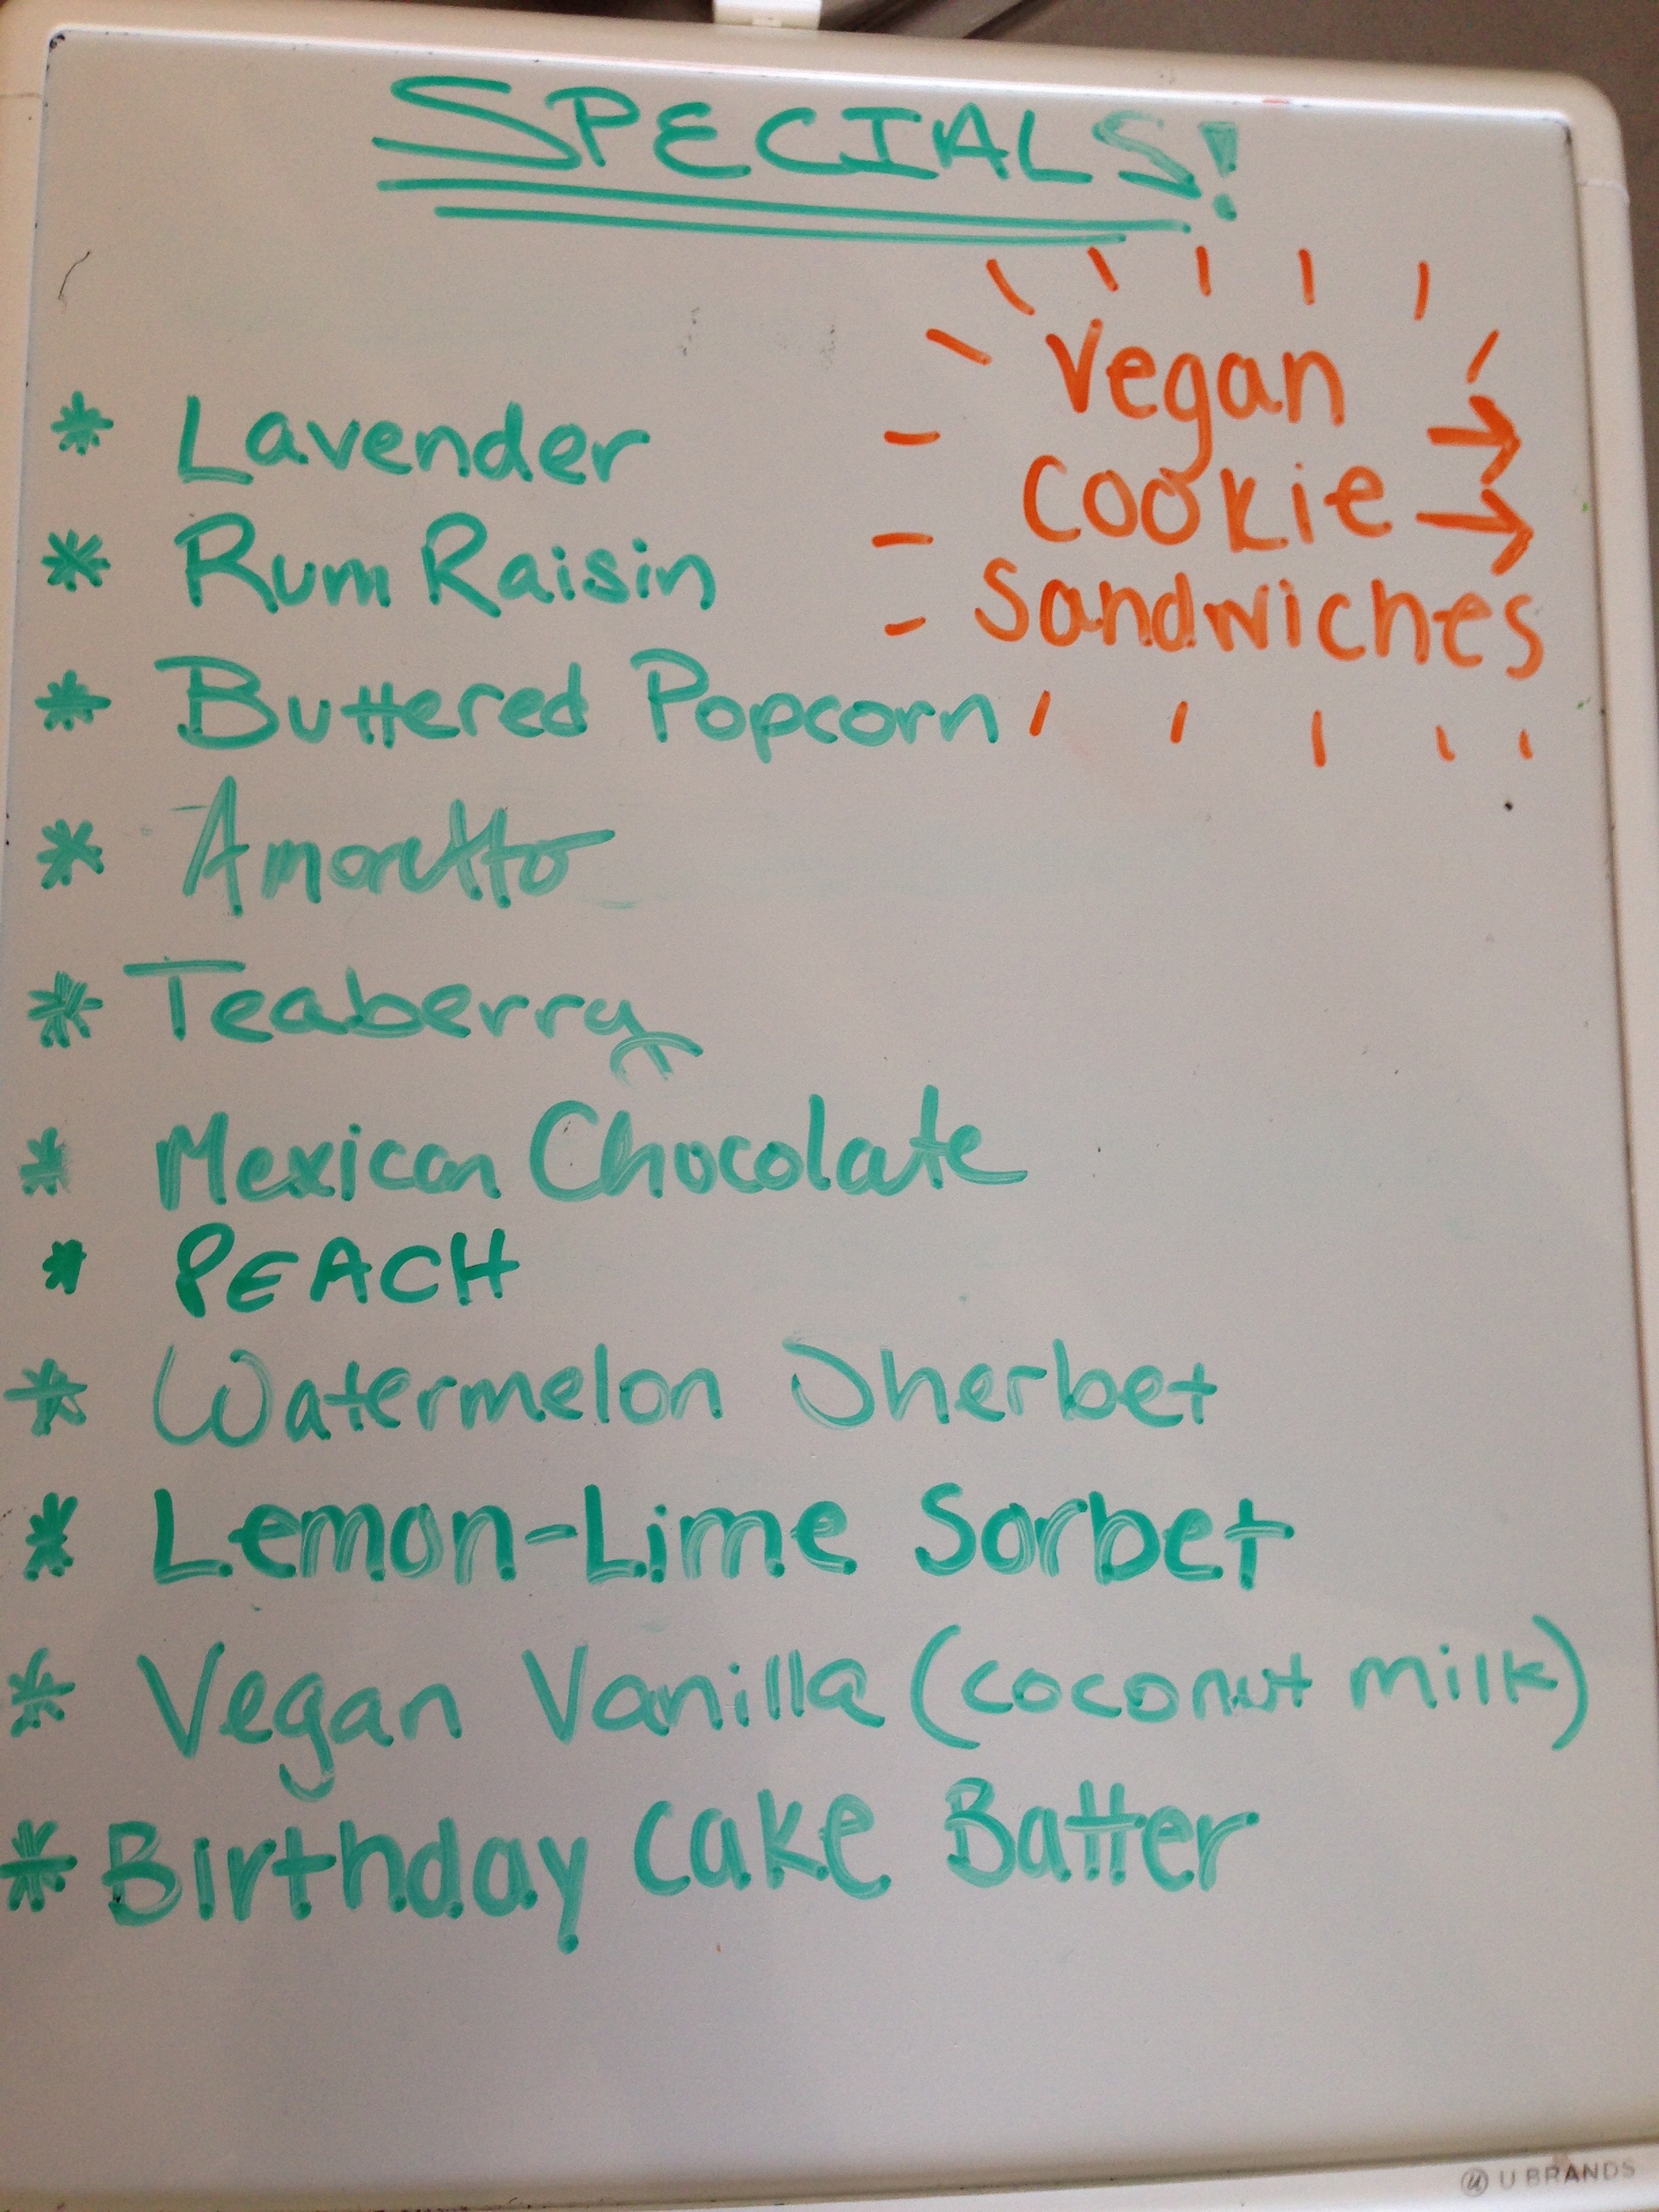 SPECIALS!
Vegan
Cookie
Sandwiches
* Lavender
* Rum Raisin
* Buttered Popcorn
* Amoretto
* Teaberry
* Mexican Chocolate
* PEACH
* Watermelon Sherbet
* Lemon-Lime Sorbet
* Vegan Vanilla (coconut milk)
* Birthday Cake Batter
U BRANDS